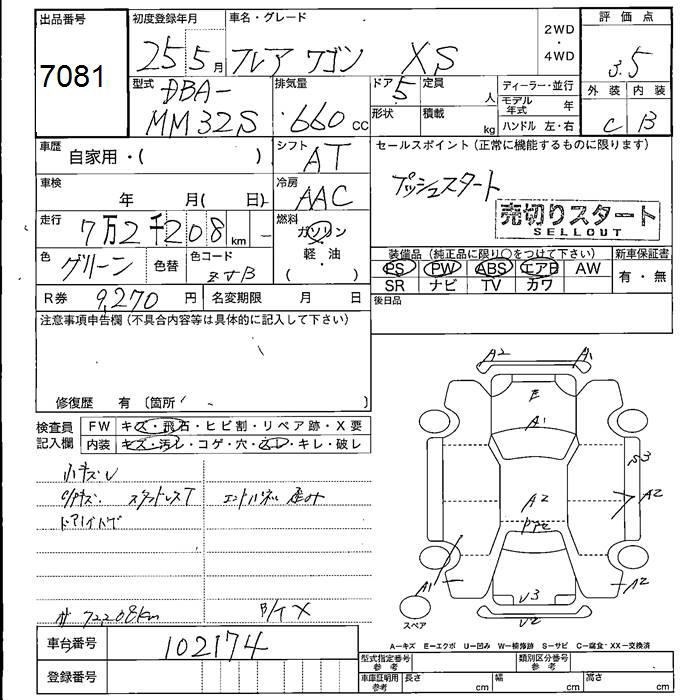 出品番号 初度登録年月 車名・グレード 2WD ・ 4WD 評価点
7081 25 5月 フレア ワゴン XS 3.5
型式 DBA- MM32S 排気量 660 cc ドア 5 定員 人 ディーラー・並行 外装 内装
形状 積載 kg モデル年式 年 C B
ハンドル 左・右
車歴 自家用・( ) シフト AT セールスポイント(正常に機能するものに限ります)
車検 年 月( 日) 冷房 AAC プッシュスタート
走行 7万2千208km 燃料 ガソリン・軽・油 ( ) 売切りスタート
SELLOUT
色 グリーン 色替 色コード ZJB 装備品(純正品に限り○をつけて下さい) 新車保証書
PS PW ABS エアB AW 有・無
SR ナビ TV カワ
R券 9,270円 名変期限 月 日 後日品
注意事項申告欄(不具合内容等は具体的に記入して下さい)
修復歴 有 〔箇所 〕
検査員記入欄 FW キズ・飛石・ヒビ割・リペア跡・X要
内装 キズ・汚レ・コゲ・穴・ムレ・キレ・破レ
小キズU
スタッドレスT
ドアバイザ
72208km
A2 A1
E
A1
S3
A2 A2
A1 A2
U3
U2
スペア
A―キズ E―エクボ U―凹み W―補修跡 S―サビ C―腐食・XX―交換済
車台番号 102174 型式指定番号 参考 類別区分番号 参考
登録番号 車庫証明用 参考 長さ cm 幅 cm 高さ cm